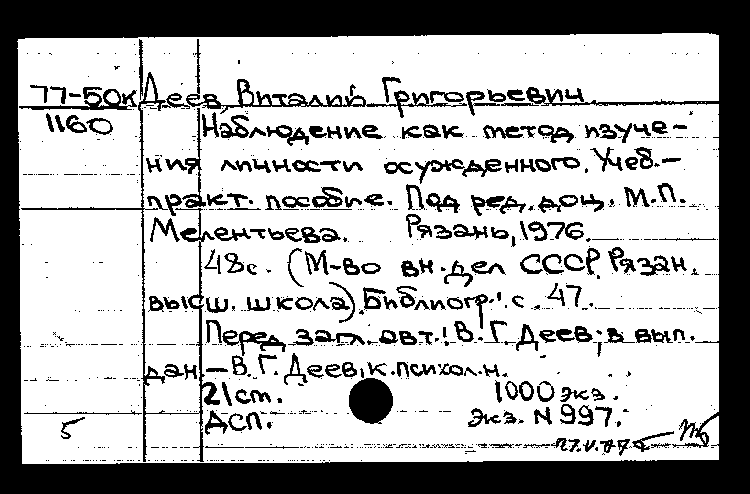 77-50к Деев, Виталий Григорьевич.
1160 Наблюдение как метод изуче-
ния личности осужденного. Учеб.-
практ. пособие. Под ред. доц. М.П.
Мелентьева. Рязань, 1976.
48с. (М-во вн. дел СССР. Рязан.
высш. школа). Библиогр.: с. 47.
Перед загл. авт.: В. Г. Деев; в вып.
дан. - В. Г. Деев, к. психол. н.
21 cm. 1000 экз.
ДСП. экз. N 997.
5